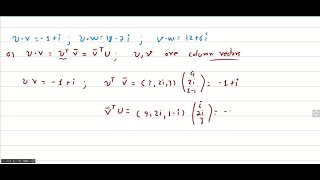 u·v = -1+i ; u·w = 18-7i ; v·w = 12+6i
a) u·v = uᵀ v̄ = v̄ᵀ u ; u, v are column vectors
u·v = -1+i ; uᵀ v̄ = (i, 2i, 3) (4 2i 1-i) = -1+i
v̄ᵀ u = (4, 2i, 1-i) (i 2i 3) = -